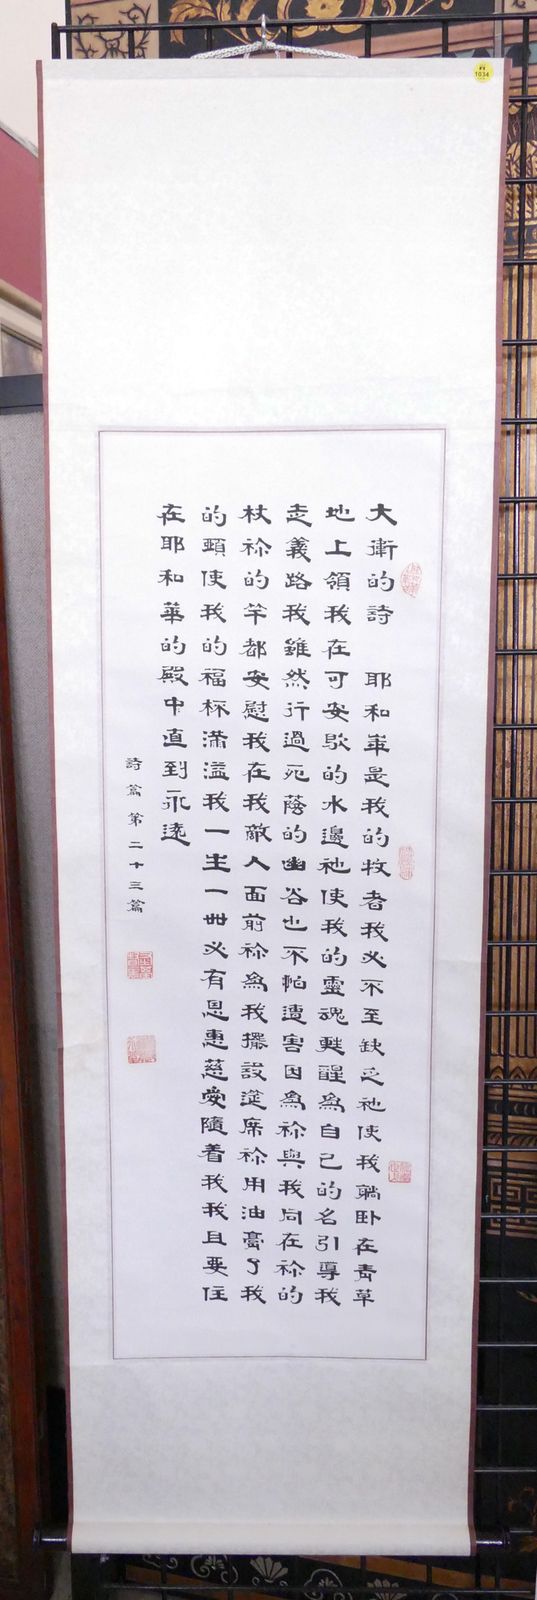 大衛的詩　耶和華是我的牧者我必不至缺乏祂使我躺卧在青草
地上領我在可安歇的水邊祂使我的靈魂甦醒為自己的名引導我
走義路我雖然行過死蔭的幽谷也不怕遭害因為祢與我同在祢的
杖祢的竿都安慰我在我敵人面前祢為我擺設筵席祢用油膏了我
的頭使我的福杯滿溢我一生一世必有恩惠慈愛隨着我我且要住
在耶和華的殿中直到永遠
詩篇第二十三篇
1034